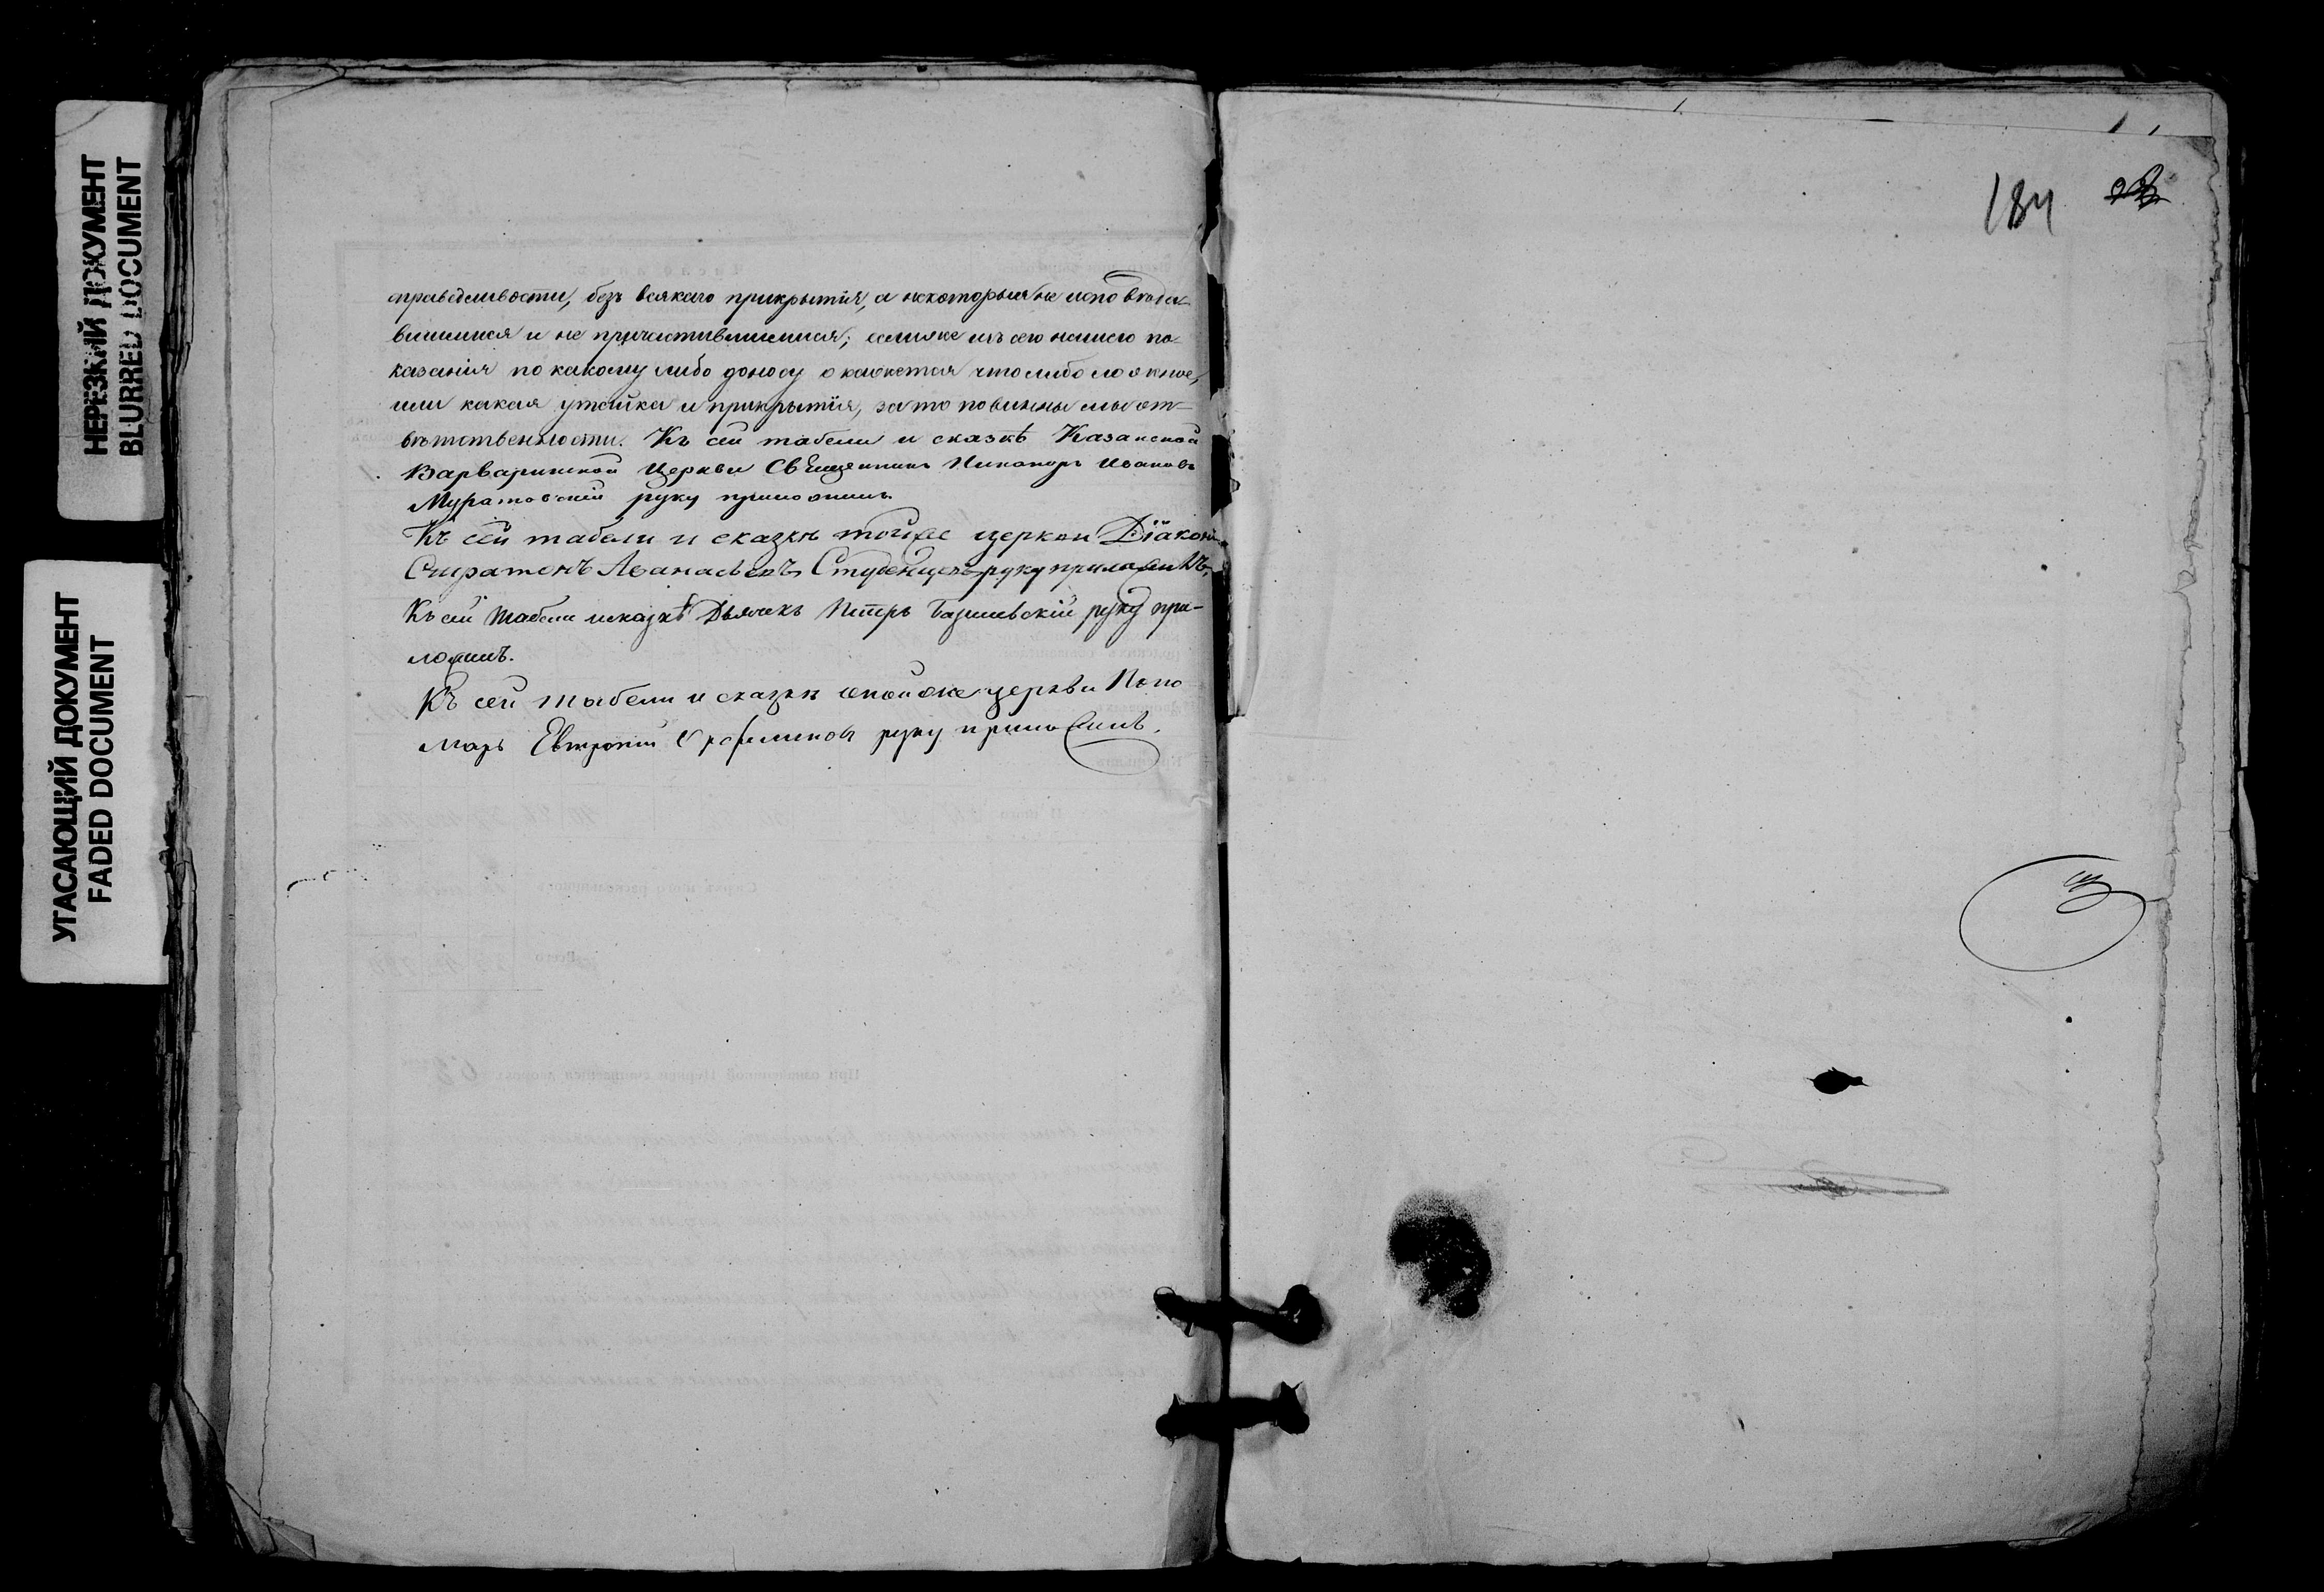 НЕРЕЗКИЙ ДОКУМЕНТ
BLURRED DOCUMENT
УГАСАЮЩИЙ ДОКУМЕНТ
FADED DOCUMENT
справедливости, безъ всякаго прикрытія, а некоторыя не исповѣда-
вшимися и не причастившимися; еслиже изъ сего нашего по-
казанія по какому либо доносу окажется что либо ложное,
или какая утайка и прикрытія, за то повинны мы от-
вѣтственности. Къ сей табели и сказкѣ Казанской
Варваринской Церкви Священникъ Никаноръ Ивановъ
Муратовскій руку приложилъ
Къ сей табели и сказкѣ тойже церкви Діаконъ
Стратонъ Аѳанасьевъ Студенцовъ руку приложилъ,
Къ сей табели и сказкѣ Дьячекъ Петръ Базилевскій руку при-
ложилъ.
Къ сей табели и сказкѣ тойже церкви Поно
марь Евтропій руку приложилъ.
184